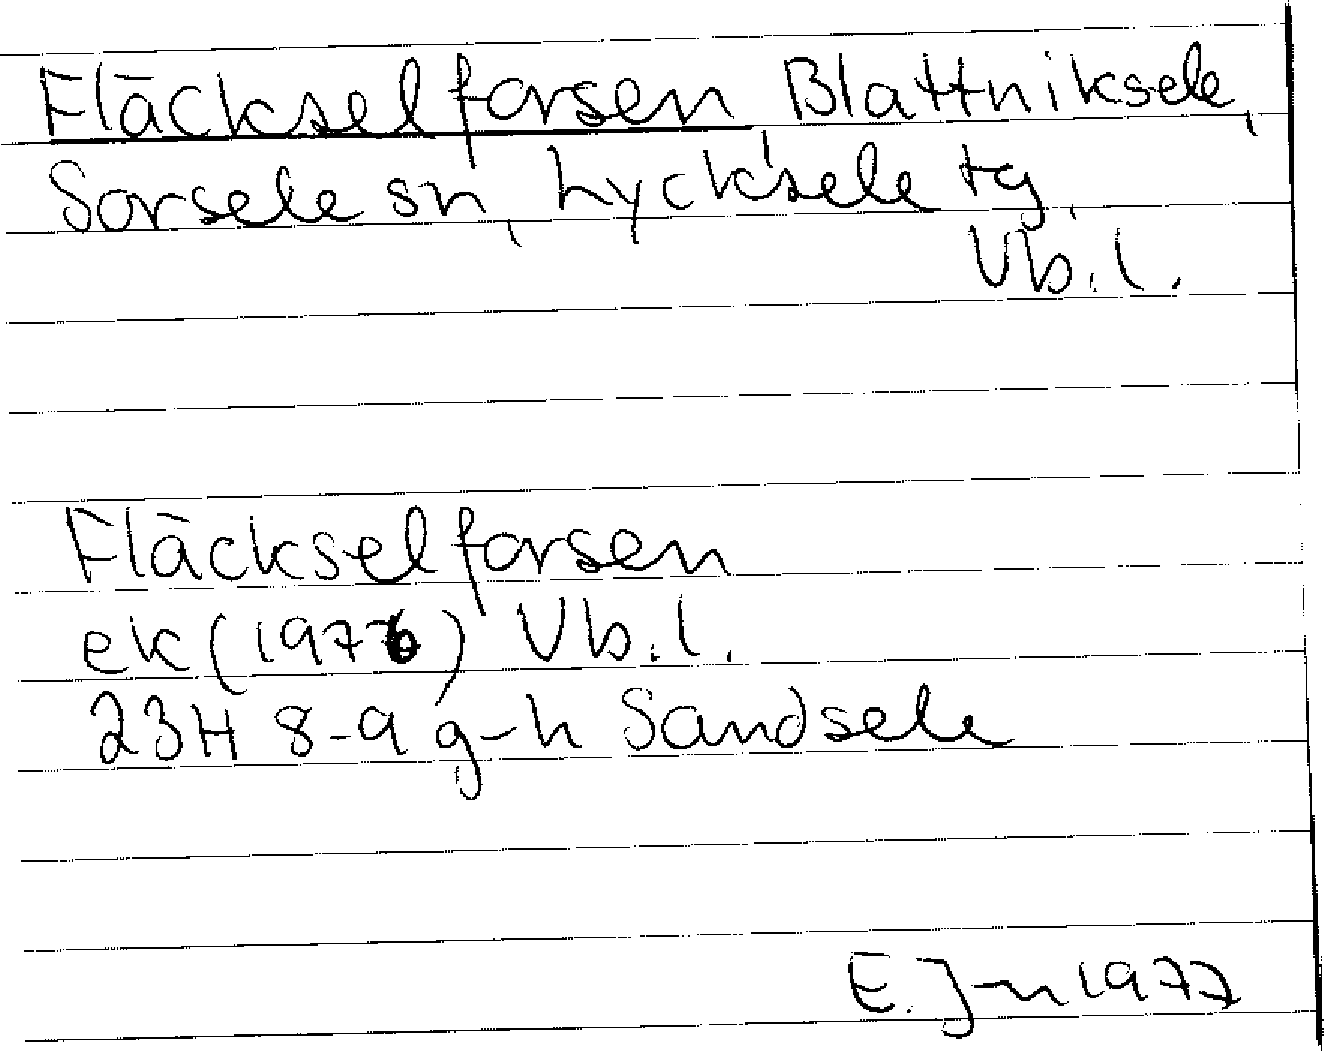 Fläckselforsen Blattniksele,
Sorsele sn, Lycksele tg,
Vb. l.
Fläckselforsen
ek (1976) Vb. l.
23H 8-9 g-h Sandsele
E. J-n 1977